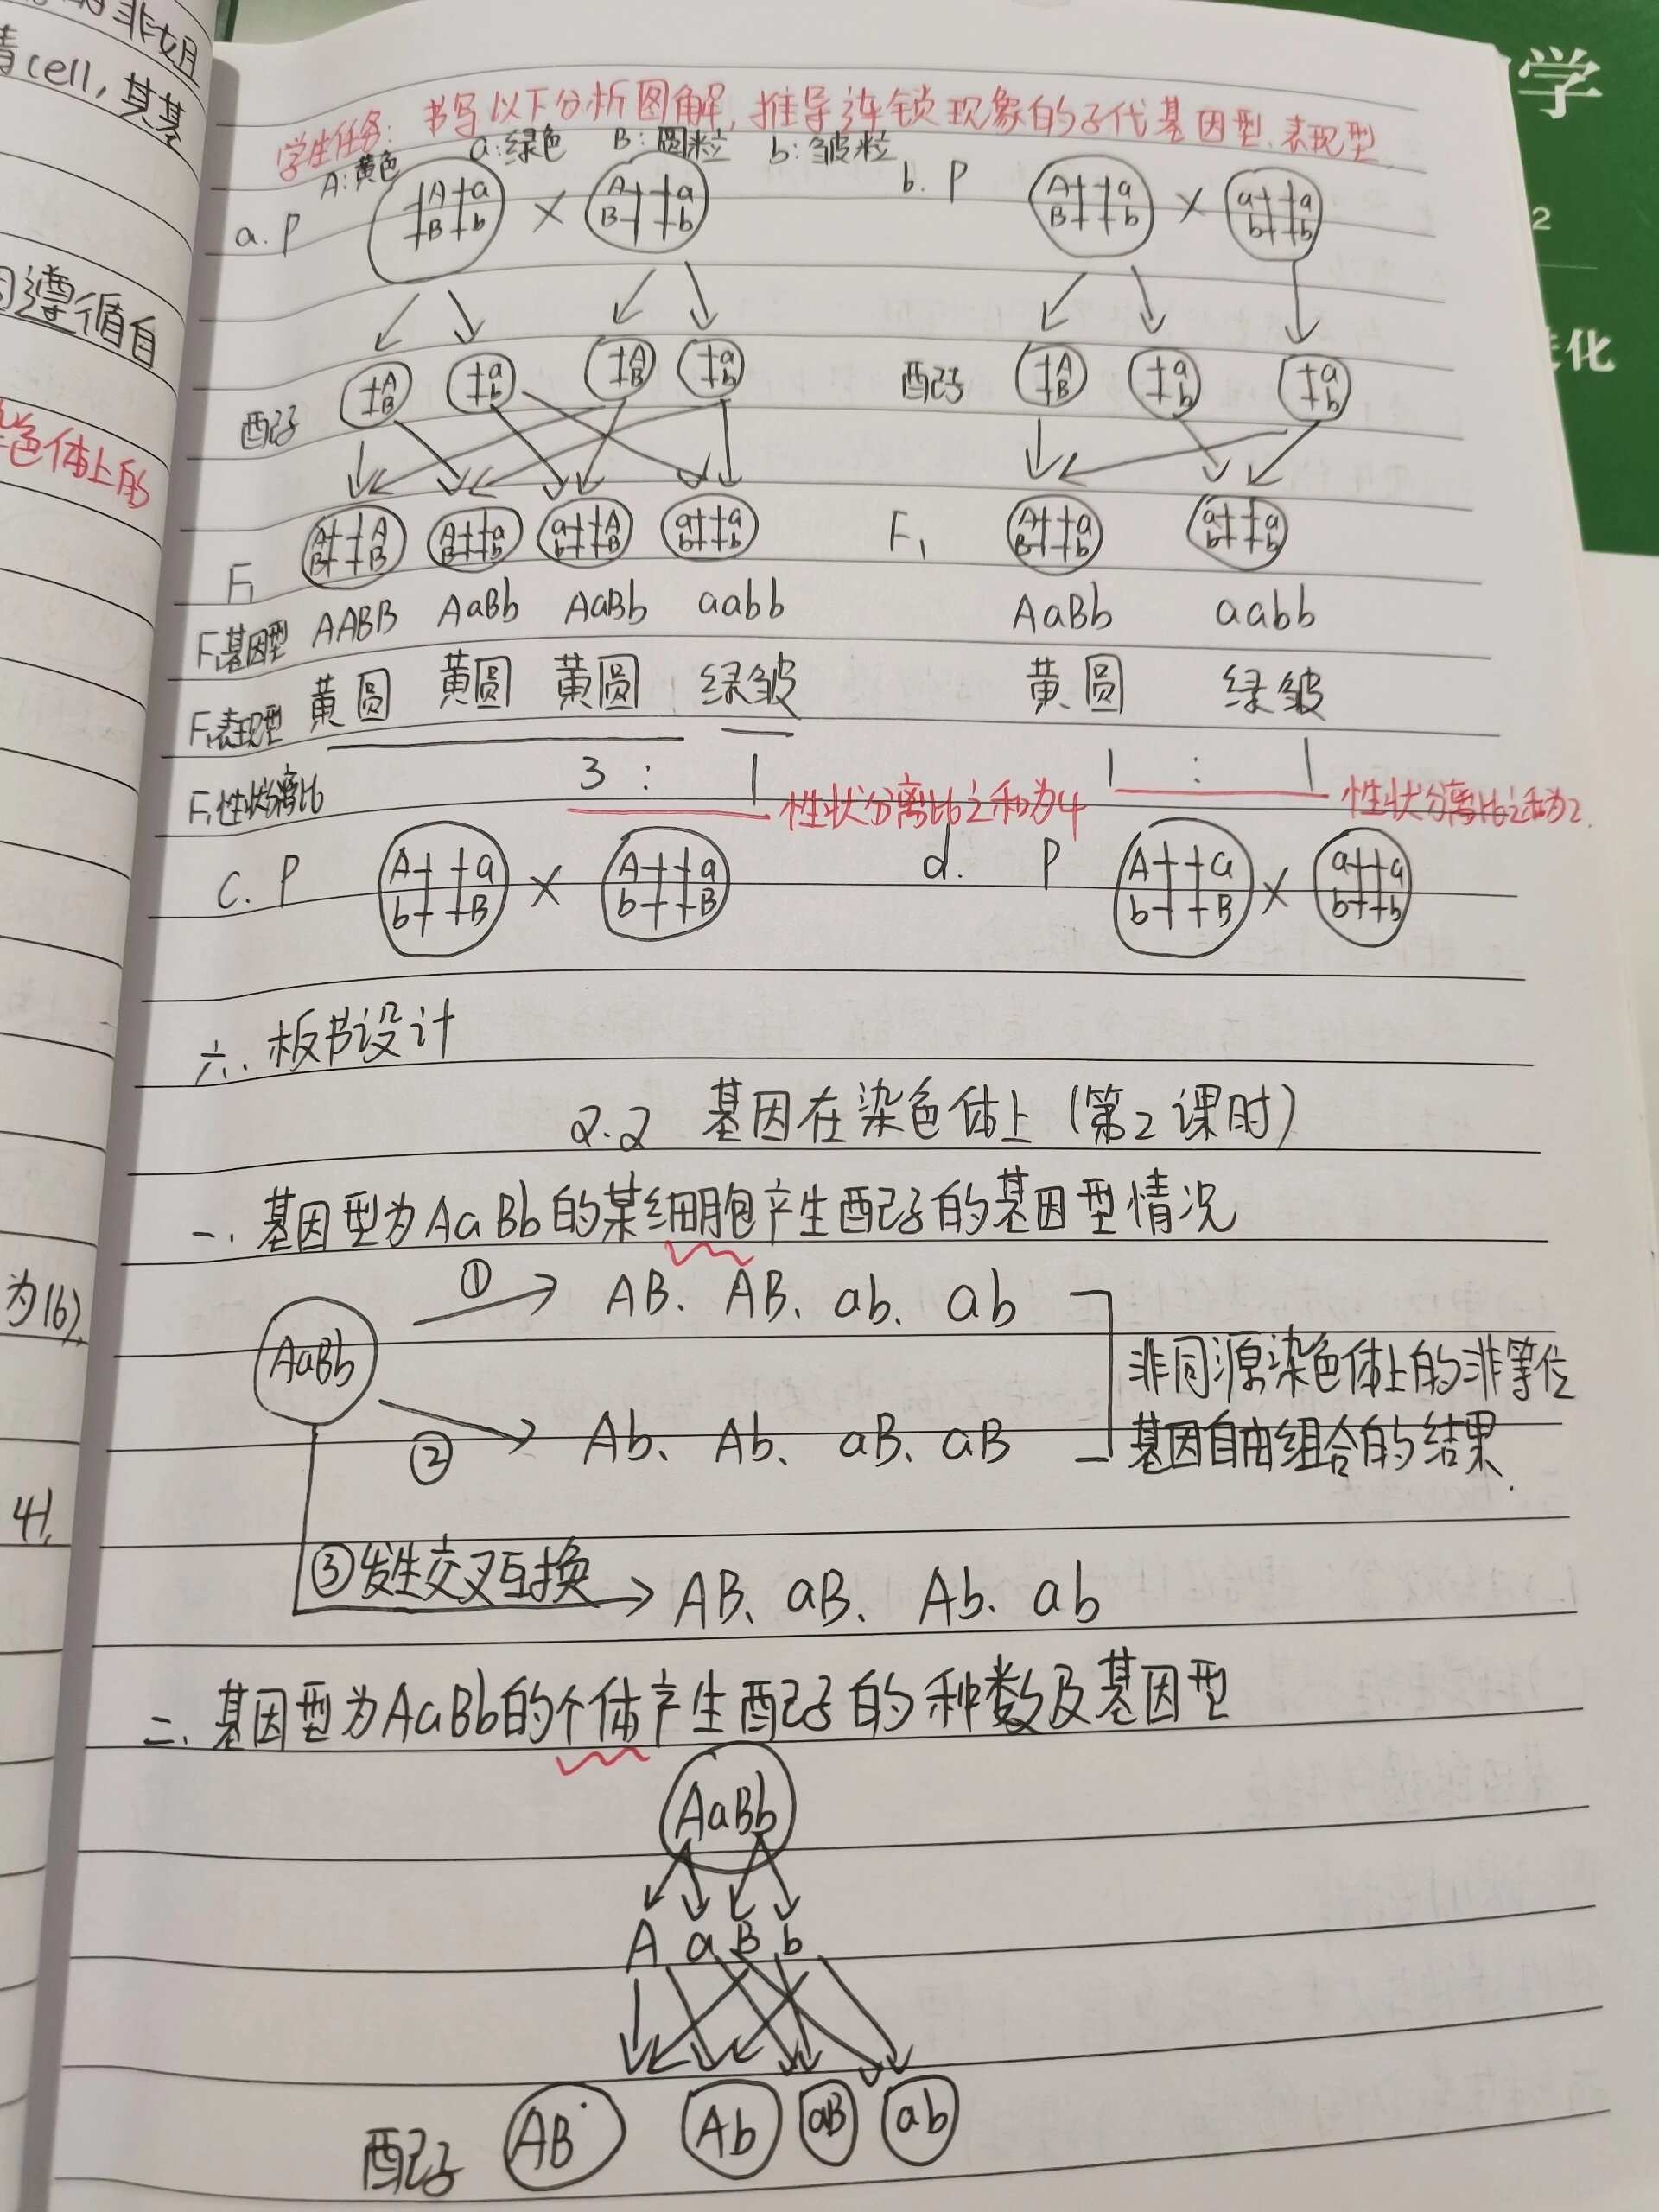 非姐
cell,其基
遵循自
色体上的
为16).
4).
学
2
化
学生任务:书写以下分析图解,推导连锁现象的子代基因型、表现型
A:黄色 a:绿色 B:圆粒 b:皱粒
a. P A a B b × A a B b
b. P A a B b × a a b b
配子 A B a b A B a b
配子 A B a b a b
F₁ A A B B A a B b a A b B a a b b
F₁ A a B b a a b b
F₁基因型 AABB AaBb AaBb aabb
AaBb aabb
F₁表现型 黄圆 黄圆 黄圆 绿皱
黄圆 绿皱
F₁性状分离比 3 : 1 性状分离比之和为4
1 : 1 性状分离比之和为2.
c. P A a b B × A a b B
d. P A a b B × a a b b
六.板书设计
2.2 基因在染色体上(第2课时)
一.基因型为AaBb的某细胞产生配子的基因型情况
AaBb
① AB、AB、ab、ab
② Ab、Ab、aB、aB
非同源染色体上的非等位
基因自由组合的结果.
③发生交叉互换 AB、aB、Ab、ab
二.基因型为AaBb的个体产生配子的种数及基因型
AaBb
A a B b
配子 AB Ab aB ab